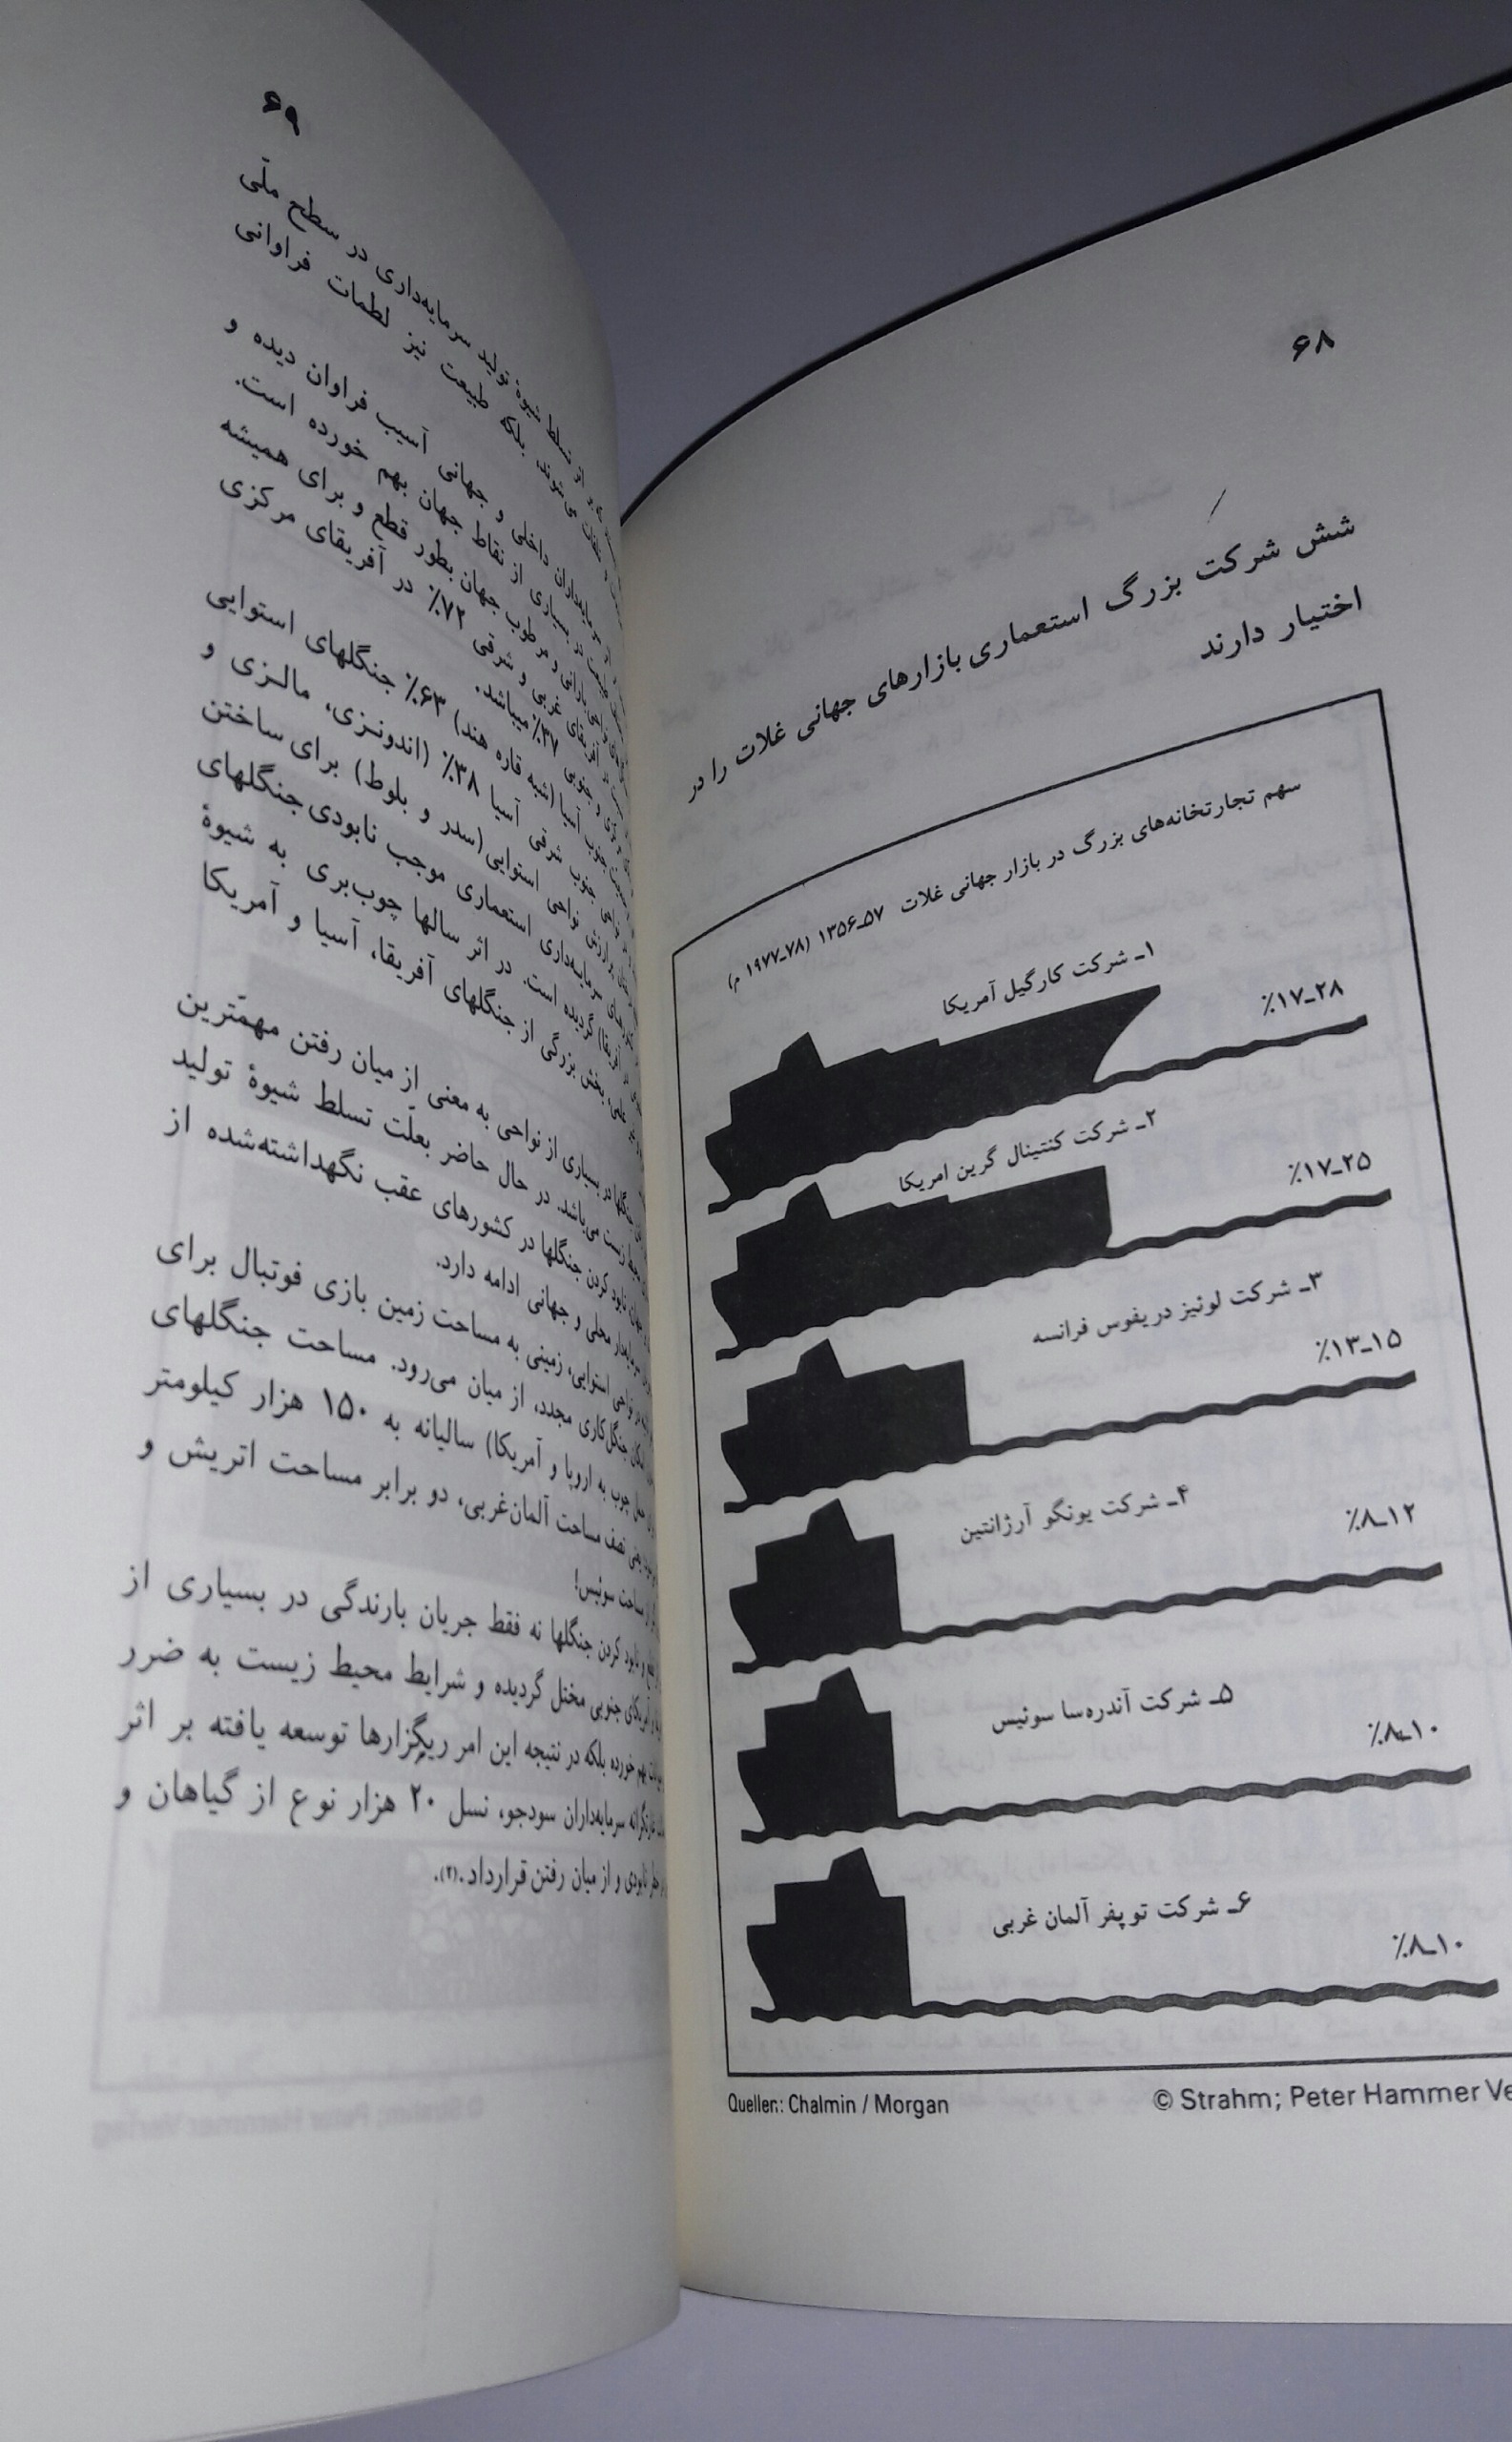 ۶۸
شش شرکت بزرگ استعماری بازارهای جهانی غلات را در
اختیار دارند
سهم تجارتخانه‌های بزرگ در بازار جهانی غلات ۵۷ـ۱۳۵۶ (۷۸ـ۱۹۷۷ م)
۱ـ شرکت کارگیل آمریکا
۲۸ـ۱۷٪
۲ـ شرکت کنتینال گرین امریکا
۲۵ـ۱۷٪
۳ـ شرکت لوئیز دریفوس فرانسه
۱۵ـ۱۳٪
۴ـ شرکت یونگو آرژانتین
۱۲ـ۸٪
۵ـ شرکت آندره‌سا سوئیس
۱۰ـ۸٪
۶ـ شرکت توپفر آلمان غربی
۱۰ـ۸٪
Quellen: Chalmin / Morgan
© Strahm; Peter Hammer Ve
۶۹
از تسلط شیوهٔ تولید سرمایه‌داری در سطح ملّی
می‌شوند، بلکه طبیعت نیز لطمات فراوانی
سرمایه‌داران داخلی و جهانی آسیب فراوان دیده و
طبیعت در بسیاری از نقاط جهان بهم خورده است.
نواحی بارانی و مرطوب جهان بطور قطع و برای همیشه
آفریقای غربی و شرقی ۷۲٪ در آفریقای مرکزی
و جنوبی ۳۷٪ میباشد.
جنوب آسیا (شبه قاره هند) ۶۳٪ جنگلهای استوایی
نواحی جنوب شرقی آسیا ۳۸٪ (اندونزی، مالزی و
باارزش نواحی استوایی (سدر و بلوط) برای ساختن
سرمایه‌داری استعماری موجب نابودی جنگلهای
آفریقا) گردیده است. در اثر سالها چوب‌بری به شیوهٔ
بخش بزرگی از جنگلهای آفریقا، آسیا و آمریکا
جنگلها در بسیاری از نواحی به معنی از میان رفتن مهمّترین
محیط زیست می‌باشد. در حال حاضر بعلّت تسلط شیوهٔ تولید
جهان نابود کردن جنگلها در کشورهای عقب نگهداشته‌شده از
سرمایه‌دار محلی و جهانی ادامه دارد.
نواحی استوایی، زمینی به مساحت زمین بازی فوتبال برای
امکان جنگل‌کاری مجدد، از میان می‌رود. مساحت جنگلهای
حمل چوب به اروپا و آمریکا) سالیانه به ۱۵۰ هزار کیلومتر
یعنی نصف مساحت آلمان‌غربی، دو برابر مساحت اتریش و
مساحت سوئیس!
و نابود کردن جنگلها نه فقط جریان بارندگی در بسیاری از
آمریکای جنوبی مختل گردیده و شرایط محیط زیست به ضرر
بهم خورده بلکه در نتیجه این امر ریگزارها توسعه یافته بر اثر
غارتگرانه سرمایه‌داران سودجو، نسل ۲۰ هزار نوع از گیاهان و
خطر نابودی و از میان رفتن قرارداد.(۲).